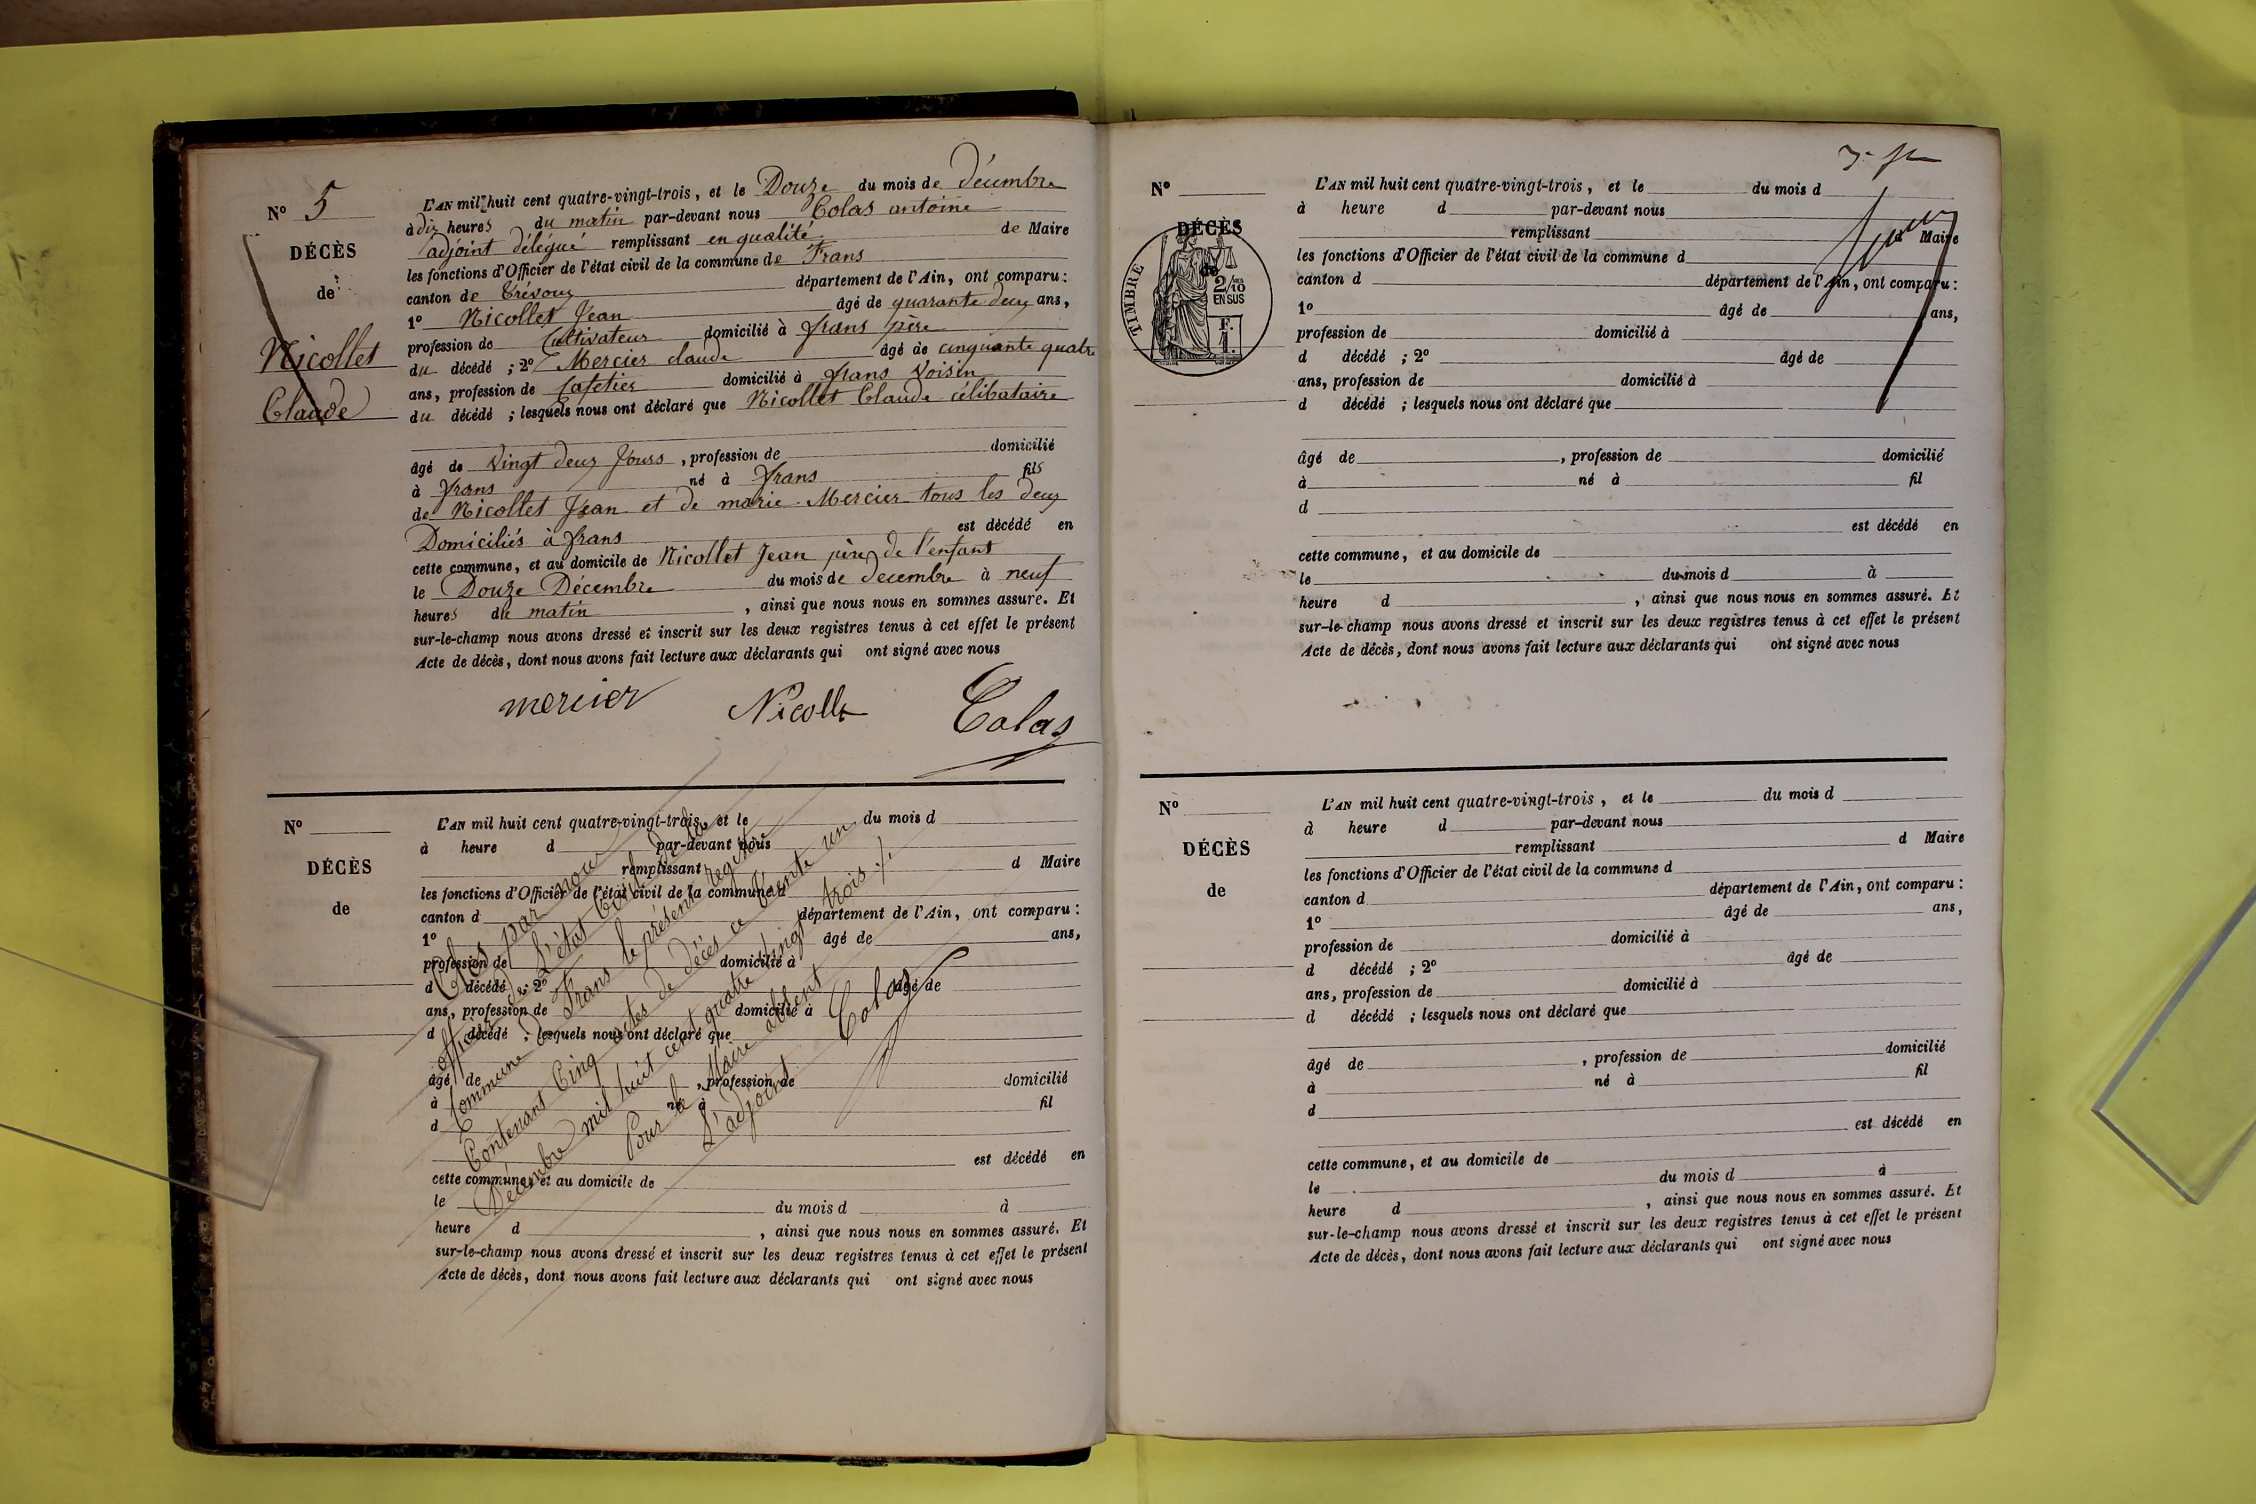 Nº 5
DÉCÈS
de
Nicollet
Claude
L'AN mil huit cent quatre-vingt-trois, et le Douze du mois de décembre
à dix heures du matin par-devant nous Colas antoine
adjoint délégué remplissant en qualité de Maire
les fonctions d'Officier de l'état civil de la commune de Frans
canton de Trévoux département de l'Ain, ont comparu :
1º Nicollet Jean âgé de quarante deux ans,
profession de Cultivateur domicilié à frans père
du décédé ; 2º Mercier claude âgé de cinquante quatre
ans, profession de Cafetier domicilié à frans voisin
du décédé ; lesquels nous ont déclaré que Nicollet Claude célibataire
âgé de vingt deux Jours , profession de domicilié
à frans né à frans fils
de Nicollet Jean et de marie Mercier tous les deux
Domiciliés à frans est décédé en
cette commune, et au domicile de Nicollet Jean père de l'enfant
le Douze Décembre du mois de decembre à neuf
heures du matin , ainsi que nous nous en sommes assuré. Et
sur-le-champ nous avons dressé et inscrit sur les deux registres tenus à cet effet le présent
Acte de décès, dont nous avons fait lecture aux déclarants qui ont signé avec nous
mercier Nicolle Colas
Nº
DÉCÈS
de
L'AN mil huit cent quatre-vingt-trois, et le du mois d
à heure d par-devant nous
remplissant d Maire
les fonctions d'Officier de l'état civil de la commune d
canton d département de l'Ain, ont comparu :
1º âgé de ans,
profession de domicilié à
d décédé ; 2º âgé de
ans, profession de domicilié à
d décédé ; lesquels nous ont déclaré que
âgé de , profession de domicilié
à né à fil
d
est décédé en
cette commune, et au domicile de
le du mois d à
heure d , ainsi que nous nous en sommes assuré. Et
sur-le-champ nous avons dressé et inscrit sur les deux registres tenus à cet effet le présent
Acte de décès, dont nous avons fait lecture aux déclarants qui ont signé avec nous
Clos par nous
officier de l'état Civil de la
Commune de Frans le présent registre
Contenant Cinq actes de décès ce trente un
Décembre mil huit cent quatre vingt trois ./.
Pour le Maire absent
L'adjoint Colas
Nº
DÉCÈS
de
TIMBRE
2/10 EN SUS
F.
1.
L'AN mil huit cent quatre-vingt-trois, et le du mois d
à heure d par-devant nous
remplissant d Maire
les fonctions d'Officier de l'état civil de la commune d
canton d département de l'Ain, ont comparu :
1º âgé de ans,
profession de domicilié à
d décédé ; 2º âgé de
ans, profession de domicilié à
d décédé ; lesquels nous ont déclaré que
âgé de , profession de domicilié
à né à fil
d
est décédé en
cette commune, et au domicile de
le du mois d à
heure d , ainsi que nous nous en sommes assuré. Et
sur-le-champ nous avons dressé et inscrit sur les deux registres tenus à cet effet le présent
Acte de décès, dont nous avons fait lecture aux déclarants qui ont signé avec nous
Nº
DÉCÈS
de
L'AN mil huit cent quatre-vingt-trois, et le du mois d
à heure d par-devant nous
remplissant d Maire
les fonctions d'Officier de l'état civil de la commune d
canton d département de l'Ain, ont comparu :
1º âgé de ans,
profession de domicilié à
d décédé ; 2º âgé de
ans, profession de domicilié à
d décédé ; lesquels nous ont déclaré que
âgé de , profession de domicilié
à né à fil
d
est décédé en
cette commune, et au domicile de
le du mois d à
heure d , ainsi que nous nous en sommes assuré. Et
sur-le-champ nous avons dressé et inscrit sur les deux registres tenus à cet effet le présent
Acte de décès, dont nous avons fait lecture aux déclarants qui ont signé avec nous